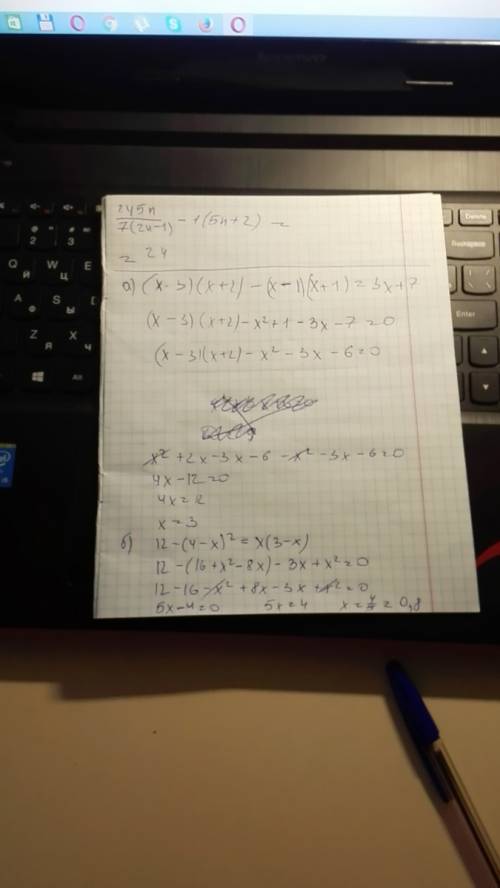 245n / 7(2n-1) - 1(5n+2) =
= 24
а) (x-3)(x+2) - (x-1)(x+1) = 3x+7
(x-3)(x+2) - x²+1-3x-7=0
(x-3)(x+2) - x² - 3x - 6=0
x² + 2x - 3x - 6 - x² - 3x - 6=0
4x - 12=0
4x = 12
x = 3
б) 12-(4-x)² = x(3-x)
12-(16+x²-8x) - 3x + x²=0
12-16-x²+8x-3x+x²=0
5x-4=0 5x=4 x=4/5=0,8